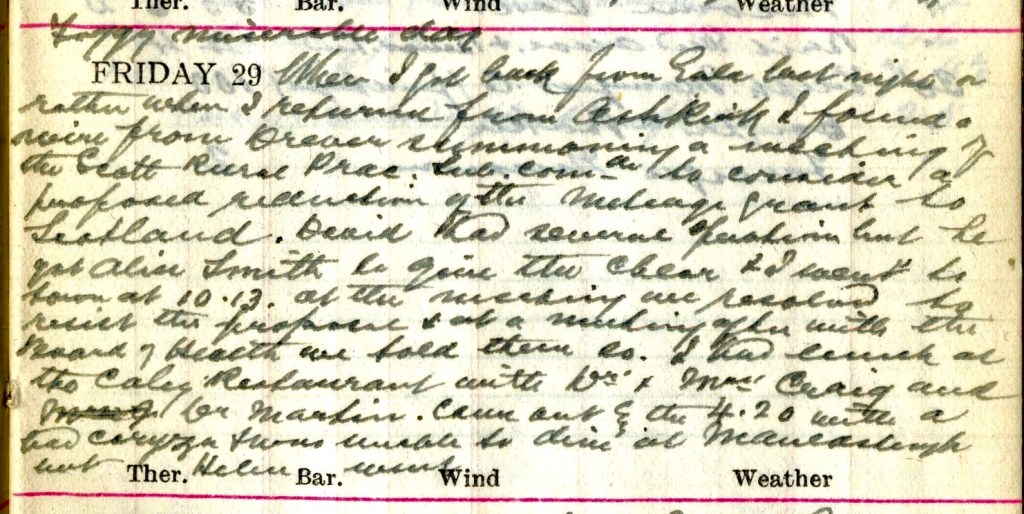 Ther. Bar. Wind Weather
Foggy miserable day
FRIDAY 29 When I got back from Gala last night or
rather when I returned from Ashkirk I found a
wire from Drever summoning a meeting of
the Scott Rural Prac. Sub. Com to consider a
proposed reduction of the Mileage grant to
Scotland. David had several operations but he
got Alin Smith to give the Chlor & I went to
town at 10.13. at the meeting we resolved to
resist the proposal & at a meeting after with the
Board of Health we told them so. I had lunch at
the Caley Restaurant with Dr & Mrs Craig and
Dr Martin. Came out by the 4.20 with a
bad coryza & was unable to dine at
but Helen went
Ther. Bar. Wind Weather